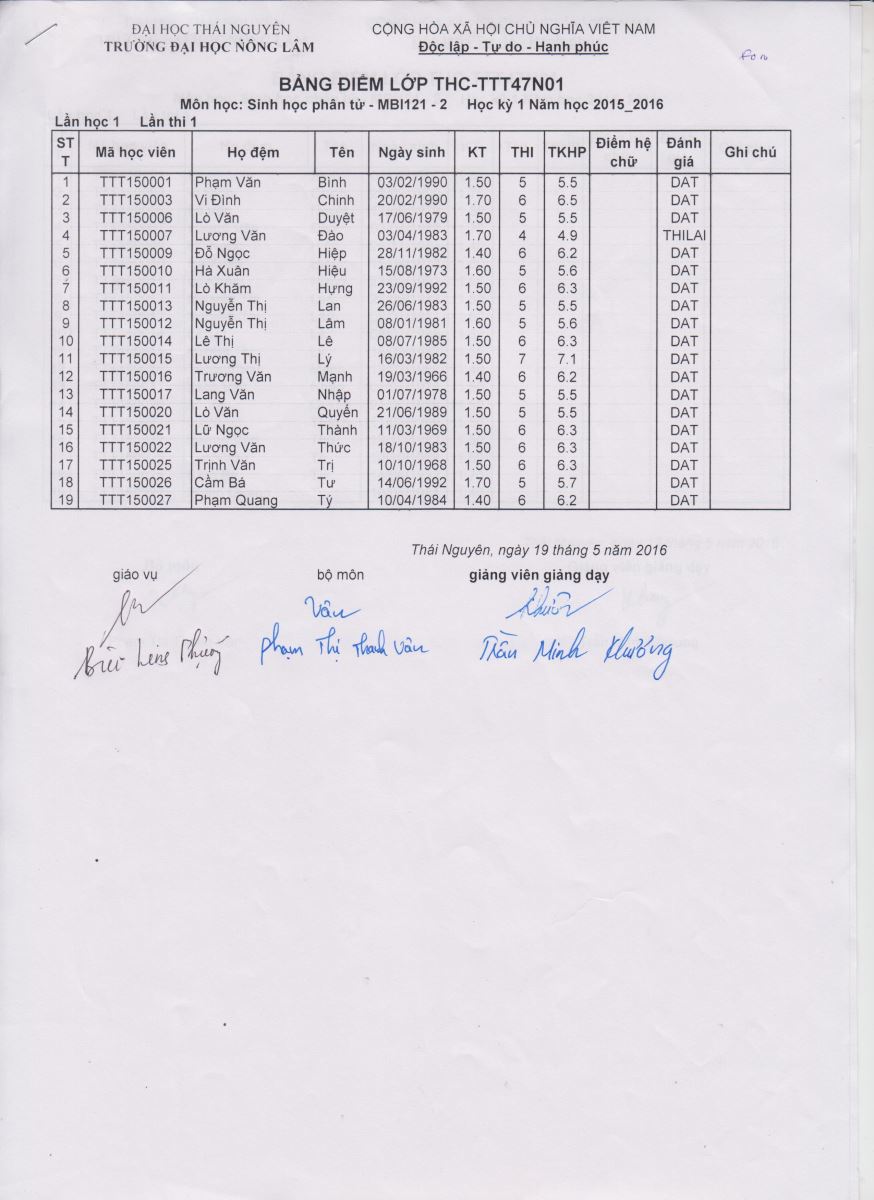 ĐẠI HỌC THÁI NGUYÊN CỘNG HÒA XÃ HỘI CHỦ NGHĨA VIỆT NAM
TRƯỜNG ĐẠI HỌC NÔNG LÂM Độc lập - Tự do - Hạnh phúc
BẢNG ĐIỂM LỚP THC-TTT47N01
Môn học: Sinh học phân tử - MBI121 - 2 Học kỳ 1 Năm học 2015_2016
Lần học 1 Lần thi 1
STT Mã học viên Họ đệm Tên Ngày sinh KT THI TKHP Điểm hệ chữ Đánh giá Ghi chú
1 TTT150001 Phạm Văn Bình 03/02/1990 1.50 5 5.5 DAT
2 TTT150003 Vi Đình Chinh 20/02/1990 1.70 6 6.5 DAT
3 TTT150006 Lò Văn Duyệt 17/06/1979 1.50 5 5.5 DAT
4 TTT150007 Lương Văn Đào 03/04/1983 1.70 4 4.9 THILAI
5 TTT150009 Đỗ Ngọc Hiệp 28/11/1982 1.40 6 6.2 DAT
6 TTT150010 Hà Xuân Hiệu 15/08/1973 1.60 5 5.6 DAT
7 TTT150011 Lò Khăm Hựng 23/09/1992 1.50 6 6.3 DAT
8 TTT150013 Nguyễn Thị Lan 26/06/1983 1.50 5 5.5 DAT
9 TTT150012 Nguyễn Thị Lâm 08/01/1981 1.60 5 5.6 DAT
10 TTT150014 Lê Thị Lê 08/07/1985 1.50 6 6.3 DAT
11 TTT150015 Lương Thị Lý 16/03/1982 1.50 7 7.1 DAT
12 TTT150016 Trương Văn Mạnh 19/03/1966 1.40 6 6.2 DAT
13 TTT150017 Lang Văn Nhập 01/07/1978 1.50 5 5.5 DAT
14 TTT150020 Lò Văn Quyến 21/06/1989 1.50 5 5.5 DAT
15 TTT150021 Lữ Ngọc Thành 11/03/1969 1.50 6 6.3 DAT
16 TTT150022 Lương Văn Thức 18/10/1983 1.50 6 6.3 DAT
17 TTT150025 Trịnh Văn Trị 10/10/1968 1.50 6 6.3 DAT
18 TTT150026 Cầm Bá Tư 14/06/1992 1.70 5 5.7 DAT
19 TTT150027 Phạm Quang Tý 10/04/1984 1.40 6 6.2 DAT
Thái Nguyên, ngày 19 tháng 5 năm 2016
giáo vụ bộ môn giảng viên giảng dạy
Vân
Phạm Thị Thanh Vân Trần Minh Khương